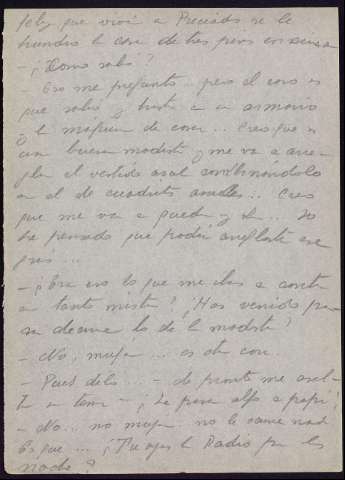 feliz que vivía a Preciados se le
hundió la casa de tres pisos encima
- ¿Cómo salió?
- Eso me pregunto... pero el caso es
que salió y hasta con su armario
y la máquina de coser... Creo que es
una buena modista y me va a arre-
glar el vestido azul combinándolo
con el de cuadritos azules.. Creo
que me va a quedar y de... Yo
he pensado que podía arreglarte ese
gris...
- ¿Era eso lo que me ibas a contar
con tanto misterio? ¿Has venido pa-
ra decirme lo de la modista?
- No, mujer... es otra cosa.
- Pues dila... - de pronto me asal-
ta un temor - ¿Le pasa algo a papá?
- No... no mujer no le ocurre nada
Es que... ¿Tu oyes la Radio por las
noches?